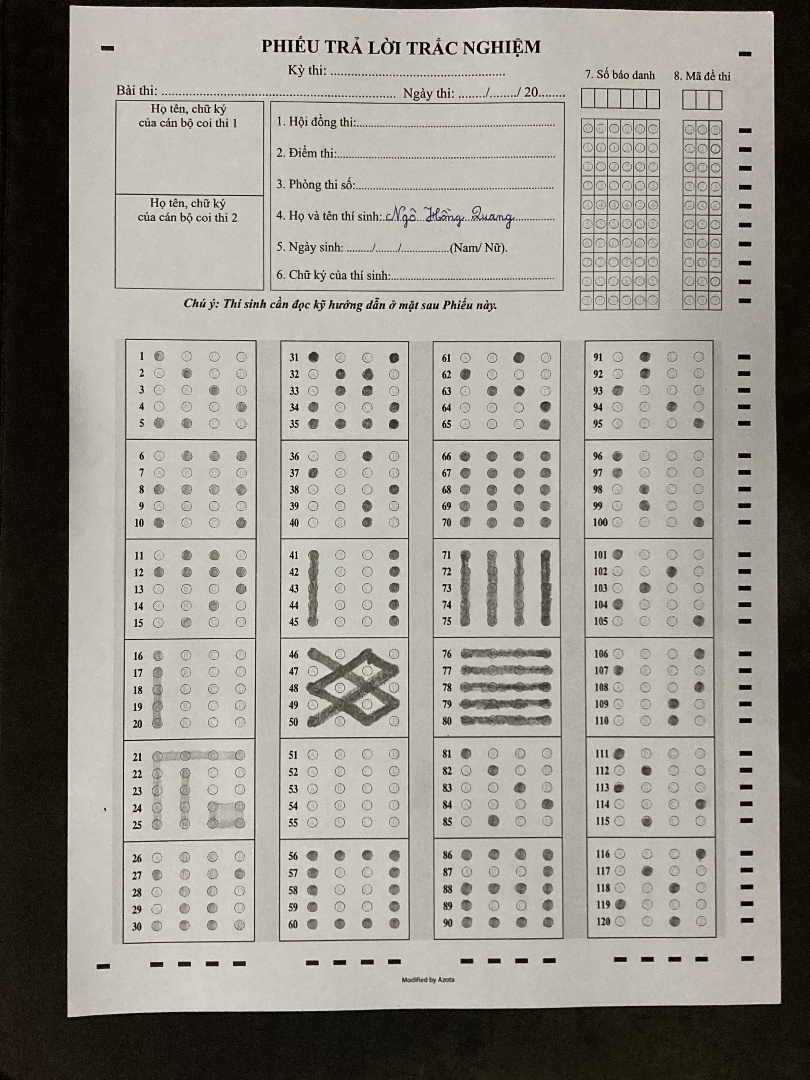 PHIẾU TRẢ LỜI TRẮC NGHIỆM
Kỳ thi: ........................................................
Bài thi: .............................................................................. Ngày thi: ......../......../ 20........
7. Số báo danh
8. Mã đề thi
Họ tên, chữ ký
của cán bộ coi thi 1
Họ tên, chữ ký
của cán bộ coi thi 2
1. Hội đồng thi:..................................................................
2. Điểm thi:.........................................................................
3. Phòng thi số:...................................................................
4. Họ và tên thí sinh: Ngô Hồng Quang
5. Ngày sinh: ......../......../................(Nam/ Nữ).
6. Chữ ký của thí sinh:.......................................................
Chú ý: Thí sinh cần đọc kỹ hướng dẫn ở mặt sau Phiếu này.
1
2
3
4
5
6
7
8
9
10
11
12
13
14
15
16
17
18
19
20
21
22
23
24
25
26
27
28
29
30
31
32
33
34
35
36
37
38
39
40
41
42
43
44
45
46
47
48
49
50
51
52
53
54
55
56
57
58
59
60
61
62
63
64
65
66
67
68
69
70
71
72
73
74
75
76
77
78
79
80
81
82
83
84
85
86
87
88
89
90
91
92
93
94
95
96
97
98
99
100
101
102
103
104
105
106
107
108
109
110
111
112
113
114
115
116
117
118
119
120
Modified by Azota